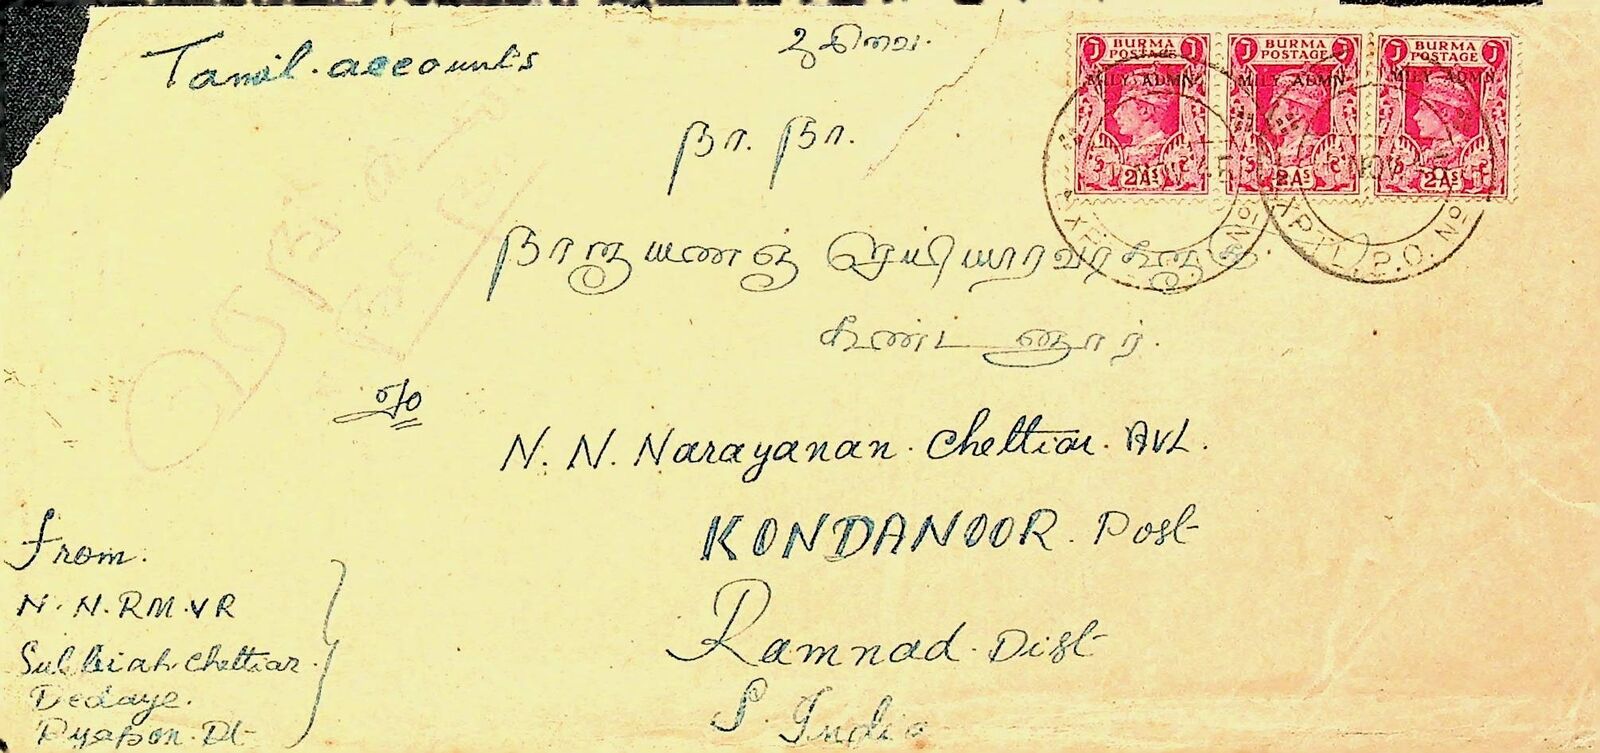 Tamil. accounts
உ சிவமயம்
BURMA POSTAGE BURMA POSTAGE BURMA POSTAGE
MILY ADMN MILY ADMN MILY ADMN
2As 2As 2As
நா. நா.
நாராயணஞ் செட்டியாரவர்களுக்கு
கண்டனூர்.
c/o
N. N. Narayanan. Chettiar. AVL.
KONDANOOR. Post
Ramnad. Dist
S. India
From.
N. N. RM. VR
Subbiah Chettiar.
Dedaye.
Pyapon. Dt